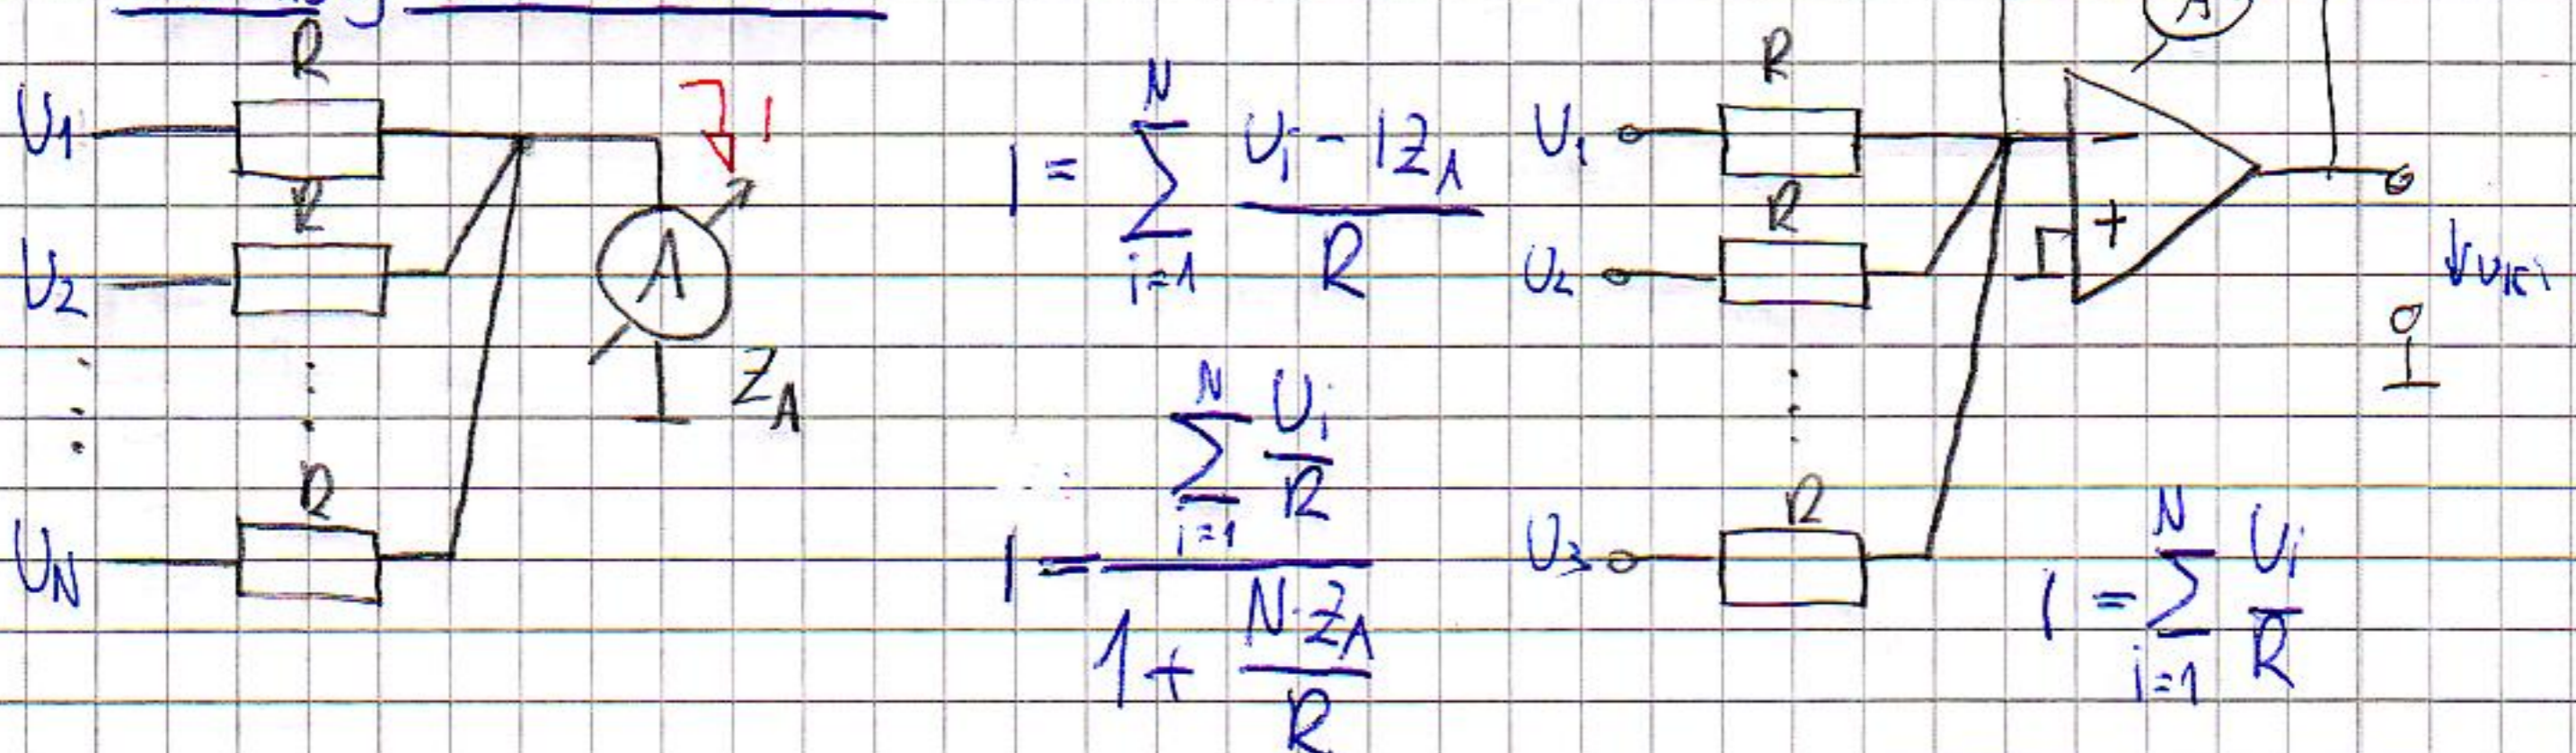 R
U1
R
U2
R
UN
I
A
ZA
I = \sum_{i=1}^{N} \frac{U_i - I Z_A}{R}
I = \frac{\sum_{i=1}^{N} \frac{U_i}{R}}{1 + \frac{N \cdot Z_A}{R}}
A
R
U1
R
U2
R
U3
−
+
Uki
I = \sum_{i=1}^{N} \frac{U_i}{R}